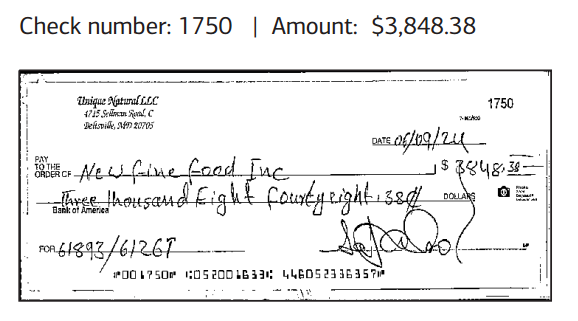 Check number: 1750 | Amount: $3,848.38
Unique Natural LLC
4715 Sellman Road, C
Beltsville, MD 20705
1750
DATE 06/09/24
PAY
TO THE
ORDER OF New Fine Food Inc $ 3848.38
Three thousand Eight Fourty eight . 38¢ DOLLARS
Bank of America
FOR 61893/61267
⑈001750⑈ ⑆052001633⑆ 446052336357⑈